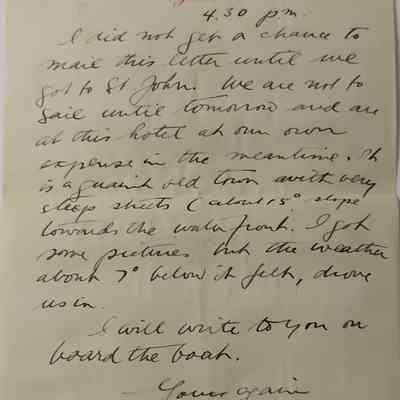 4.30 pm.
I did not get a chance to
mail this letter until we
got to St John. We are not to
sail until tomorrow and are
at this hotel at our own
expense in the meantime. It
is a quaint old town with very
steep streets (about 15° slope
towards the waterfront. I got
some pictures but the weather
about 7° below it felt, drove
us in.
I will write to you on
board the boat.
Yours again